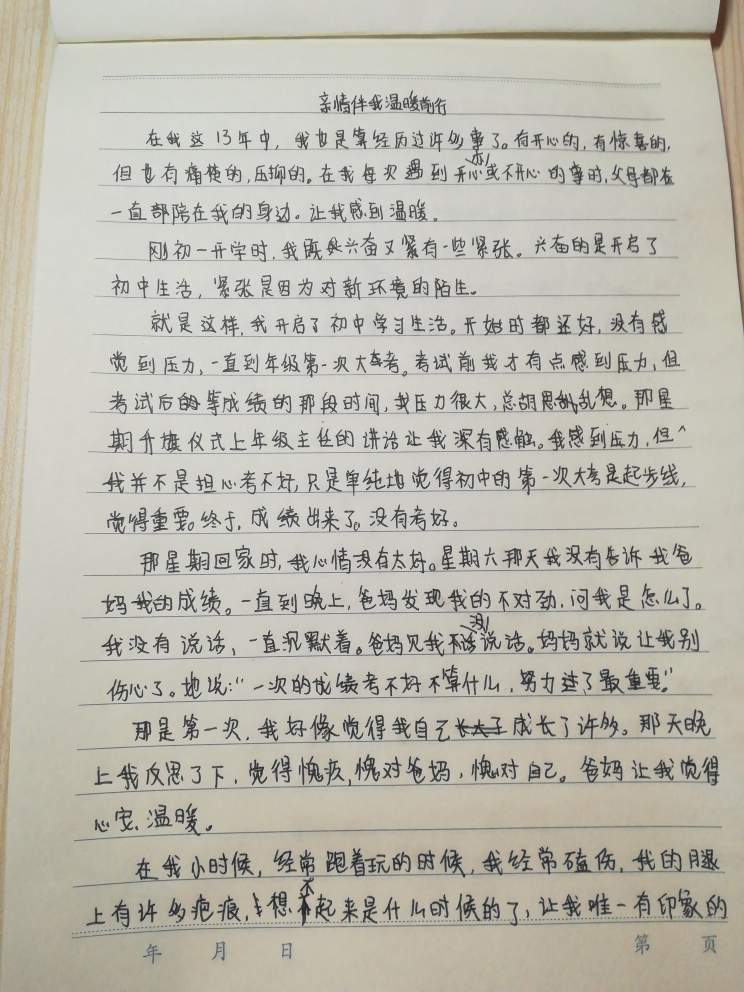 亲情伴我温暖前行
在我这13年中，我也是算经历过许多事了。有开心的，有惊喜的，
但也有痛楚的，压抑的。在我每次遇到开心亦或不开心的事时，父母都在
一直部陪在我的身边。让我感到温暖。
刚初一开学时，我既兴奋又有一些紧张。兴奋的是开启了
初中生活，紧张是因为对新环境的陌生。
就是这样，我开启了初中学习生活。开始时都还好，没有感
觉到压力，一直到年级第一次大考。考试前我才有点感到压力，但
考试后的等成绩的那段时间，我压力很大，总胡思乱想。那星
期升旗仪式上年级主任的讲话让我深有感触。我感到压力，但
我并不是担心考不好，只是单纯地觉得初中的第一次大考是起步线，
觉得重要。终于，成绩出来了。没有考好。
那星期回家时，我心情没有太好。星期六那天我没有告诉我爸
妈我的成绩。一直到晚上，爸妈发现我的不对劲，问我是怎么了。
我没有说话，一直沉默着。爸妈见我没说话。妈妈就说让我别
伤心了。她说：“一次的成绩考不好不算什么，努力过了最重要。”
那是第一次，我好像觉得我自己成长了许多。那天晚
上我反思了下，觉得愧疚，愧对爸妈，愧对自己。爸妈让我觉得
心安、温暖。
在我小时候，经常跑着玩的时候，我经常磕伤，我的腿
上有许多疤痕，想不起来是什么时候的了，让我唯一有印象的
年 月 日 第 页